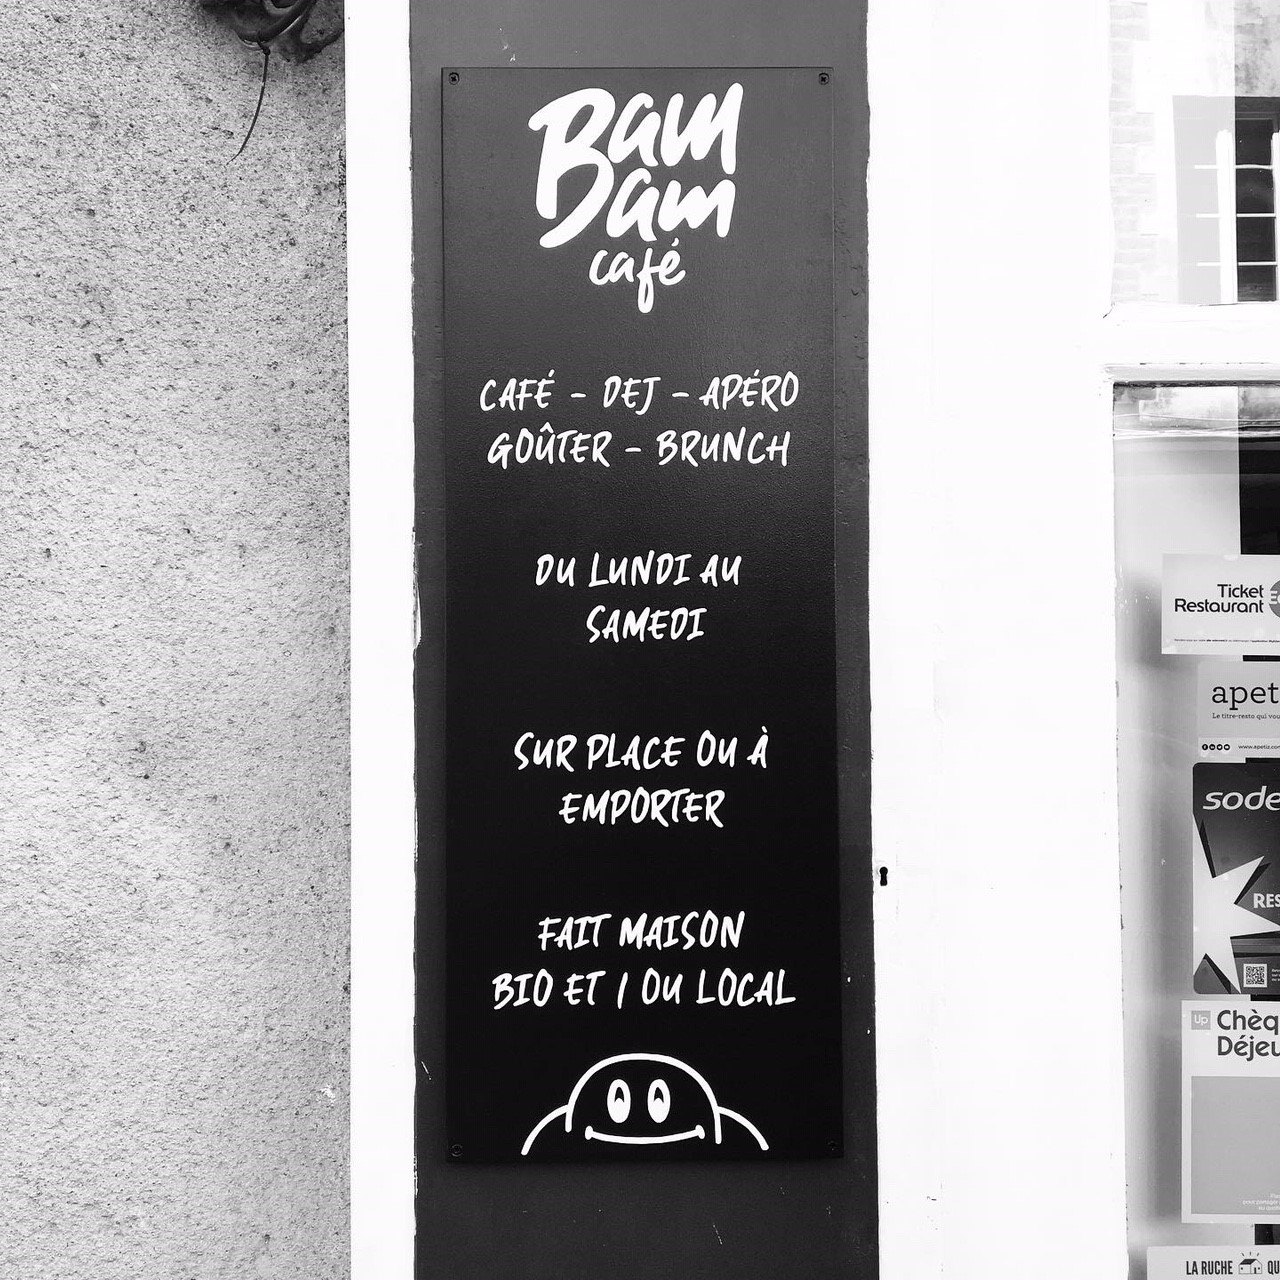 Bam
Bam
café
CAFÉ - DEJ - APÉRO
GOÛTER - BRUNCH
DU LUNDI AU
SAMEDI
SUR PLACE OU À
EMPORTER
FAIT MAISON
BIO ET / OU LOCAL
Ticket
Restaurant
apet
Le titre-resto qui vou
www.apetiz.com
sode
RES
Up
Chèq
Déjeu
LA RUCHE QU